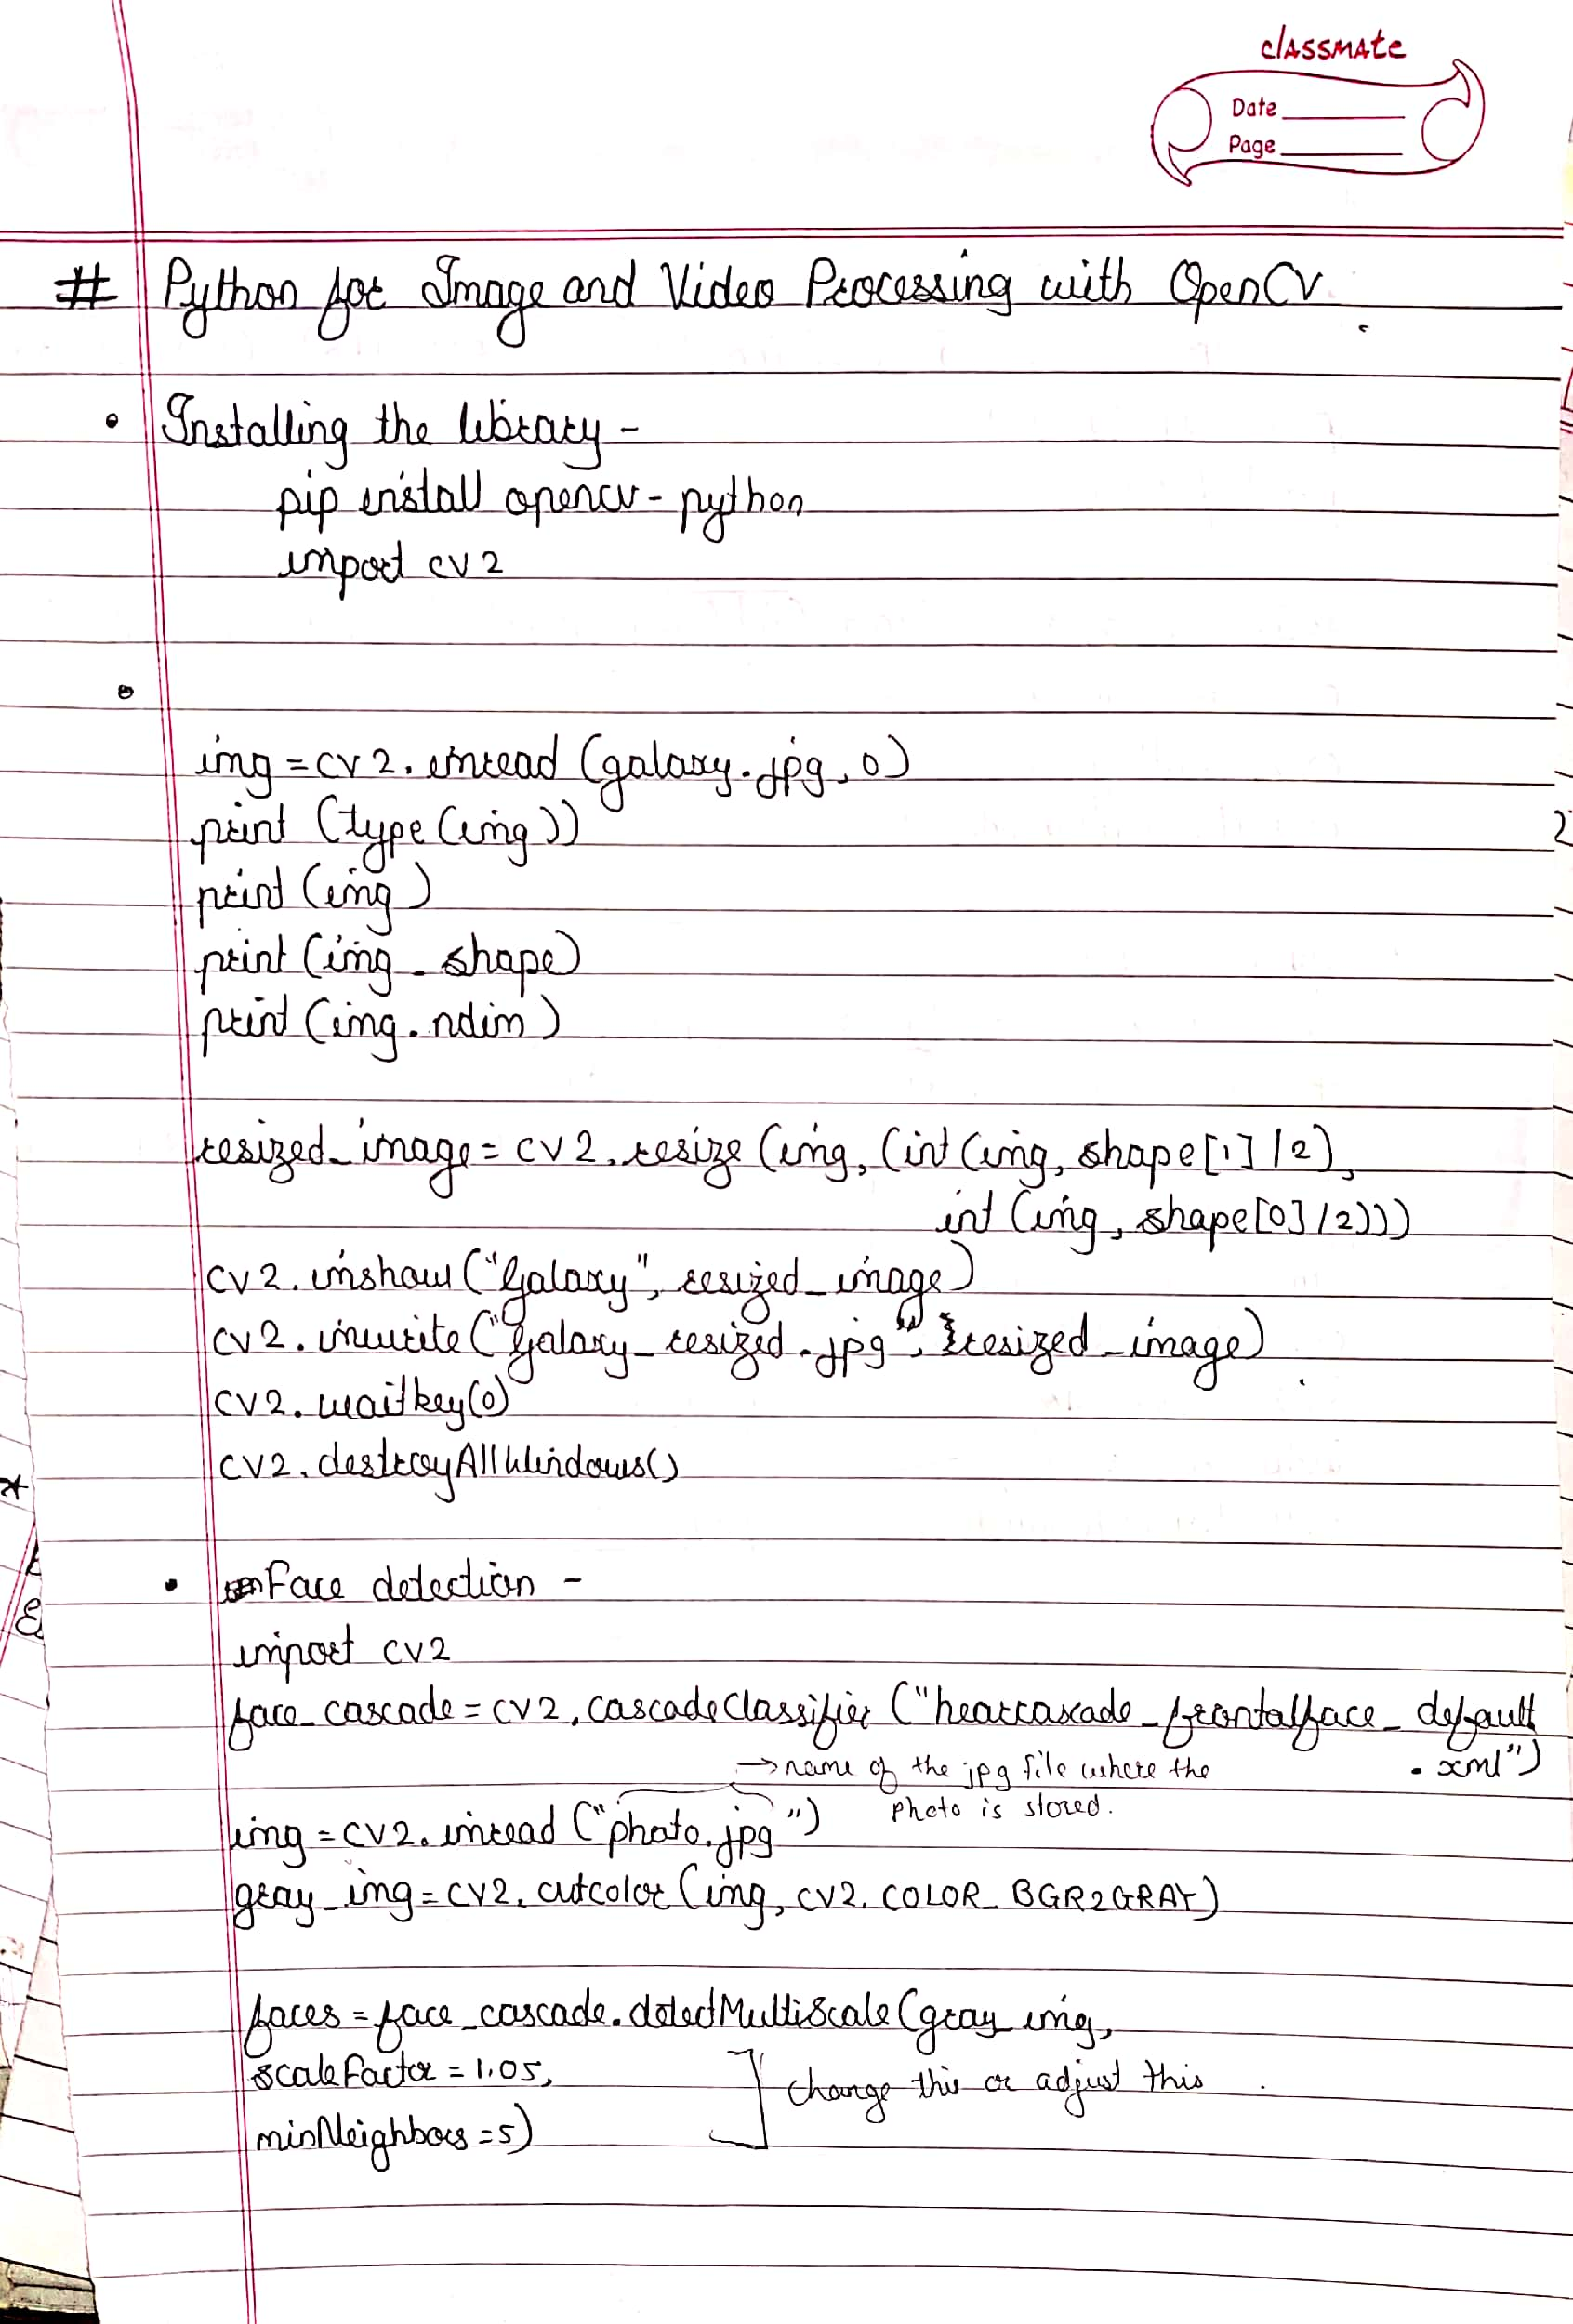 classmate
Date
Page
# Python for Image and Video Processing with OpenCV
• Installing the library -
pip install opencv-python
import cv2
•
img = cv2.imread (galaxy.jpg, 0)
print (type (img))
print (img)
print (img.shape)
print (img.ndim)
resized_image = cv2.resize (img, (int (img, shape[1] /2),
int (img, shape[0] /2)))
cv2.imshow ("Galaxy", resized_image)
cv2.imwrite ("Galaxy_resized.jpg", resized_image)
cv2.waitkey(0)
cv2.destroyAllWindows()
• Face detection -
import cv2
face_cascade = cv2.cascadeClassifier ("hearcascade_frontalface_default
.xml")
→ name of the jpg file where the
photo is stored.
img = cv2.imread ("photo.jpg")
gray_img = cv2.cvtcolor (img, cv2.COLOR_BGR2GRAY)
faces = face_cascade.detectMultiScale (gray_img,
scaleFactor = 1.05,
minNeighbors = 5)
change this or adjust this